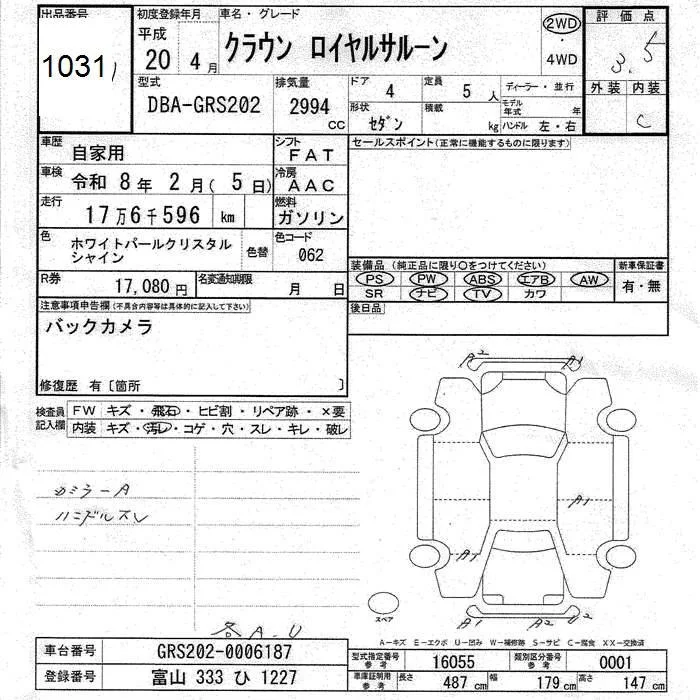 出品番号 初度登録年月 車名・グレード 評価点
1031
平成 20 年 4 月 クラウン ロイヤルサルーン 2WD・4WD 3.5
型式 排気量 ドア 定員 ディーラー・並行 外装 内装
DBA-GRS202 2994 CC 4 5 人 モデル年式 年 C
形状 セダン 積載 kg ハンドル 左・右
車歴 自家用 シフト FAT セールスポイント(正常に機能するものに限ります)
車検 令和 8 年 2 月( 5 日) 冷房 AAC
走行 17万6千596 km 燃料 ガソリン
色 ホワイトパールクリスタルシャイン 色替 色コード 062
装備品(純正品に限り○をつけてください) 新車保証書
PS PW ABS エアB AW 有・無
SR ナビ TV カワ
R券 17,080円 名変通知期限 月 日
後日品
注意事項申告欄(不具合内容等は具体的に記入して下さい)
バックカメラ
修復歴 有〔箇所 〕
検査員記入欄 FW キズ・飛石・ヒビ割・リペア跡・×要
内装 キズ・汚レ・コゲ・穴・スレ・キレ・破レ
A2 A1
カミラーA
ハンドルスレ
A1
A1
スペア
A1 A2 U2
各A.U
A-キズ E-エクボ U-凹み W-補修跡 S-サビ C-腐食 XX-交換済
車台番号 GRS202-0006187
型式指定番号 参考 16055 類別区分番号 参考 0001
登録番号 富山 333 ひ 1227
車庫証明用 参考 長さ 487 cm 幅 179 cm 高さ 147 cm